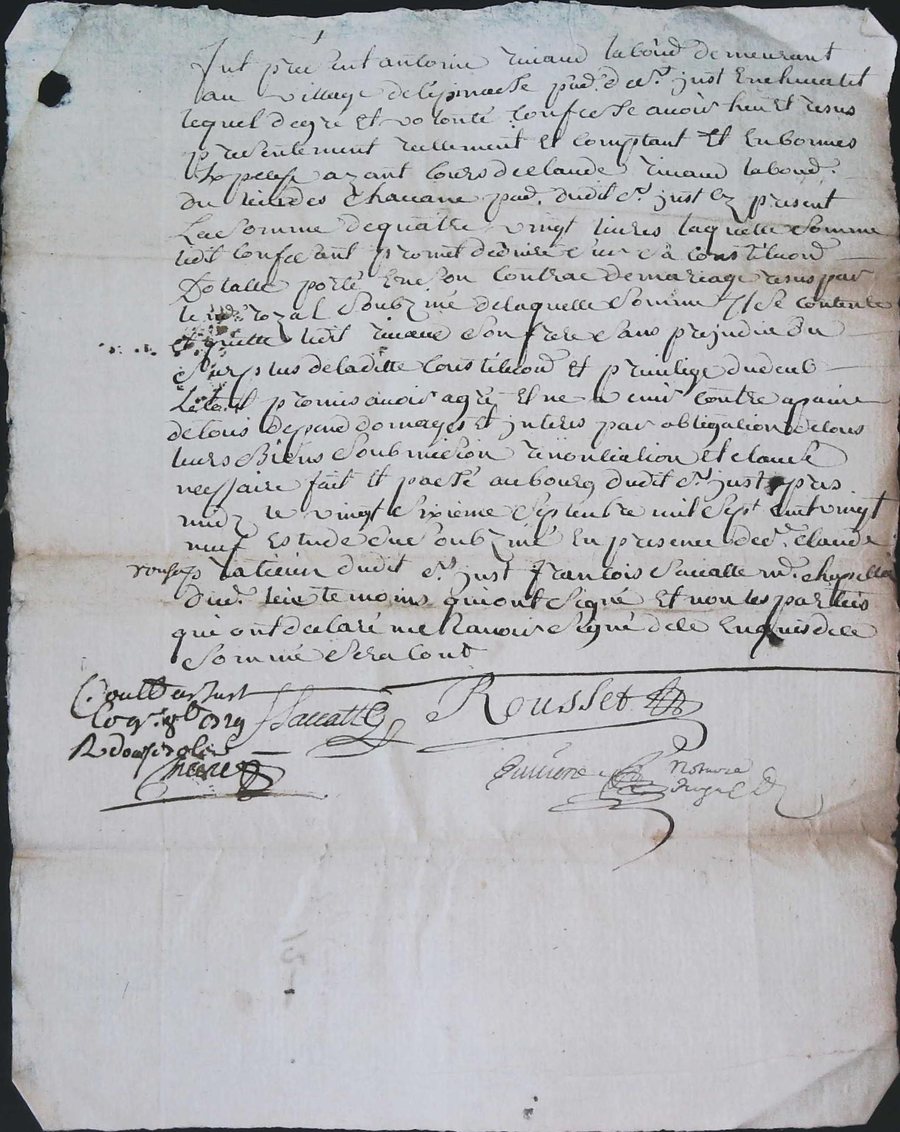 fut présent antoine rinaud labour demeurant
au village de l'epinasse pad. de st just en chevallet
lequel de gré et volonté confesse avoir heu et resus
presentement reellement et comptant et en bonnes
espesse ayant cours de claude rinaud labour.
du lieu des Chavane pad. dudit st just cy present
La somme de quatre vingt livres laquelle somme
ledit confessant promet
dotalle porté en son contrac de mariage resus par
le no. royal soubzmé de laquelle somme il se contente
et quitte ledit rinaud son frere sans prejudice du
surplus de laditte constituon et privilege
promis avoir agré et ne venir contre a paine
de tous depend domages et interes par obligation de tous
leurs Biens soubmission renonciation et clause
nessaire fait et passé au bourg dudit st just apres
midy le vingt sixieme septembre mil sept cent vingt
neuf estude du soubzmé en presence de sr. claude
rousset praticien dudit st just françois sacatte md. chapellier
dud. lieu temoins qui ont signé et non les parties
qui ont declaré ne scavoir signé de ce enquis de la
somme
Coutt St Just
8b 1729 fSaccatte Rousset
R douze sols
notaire
royal